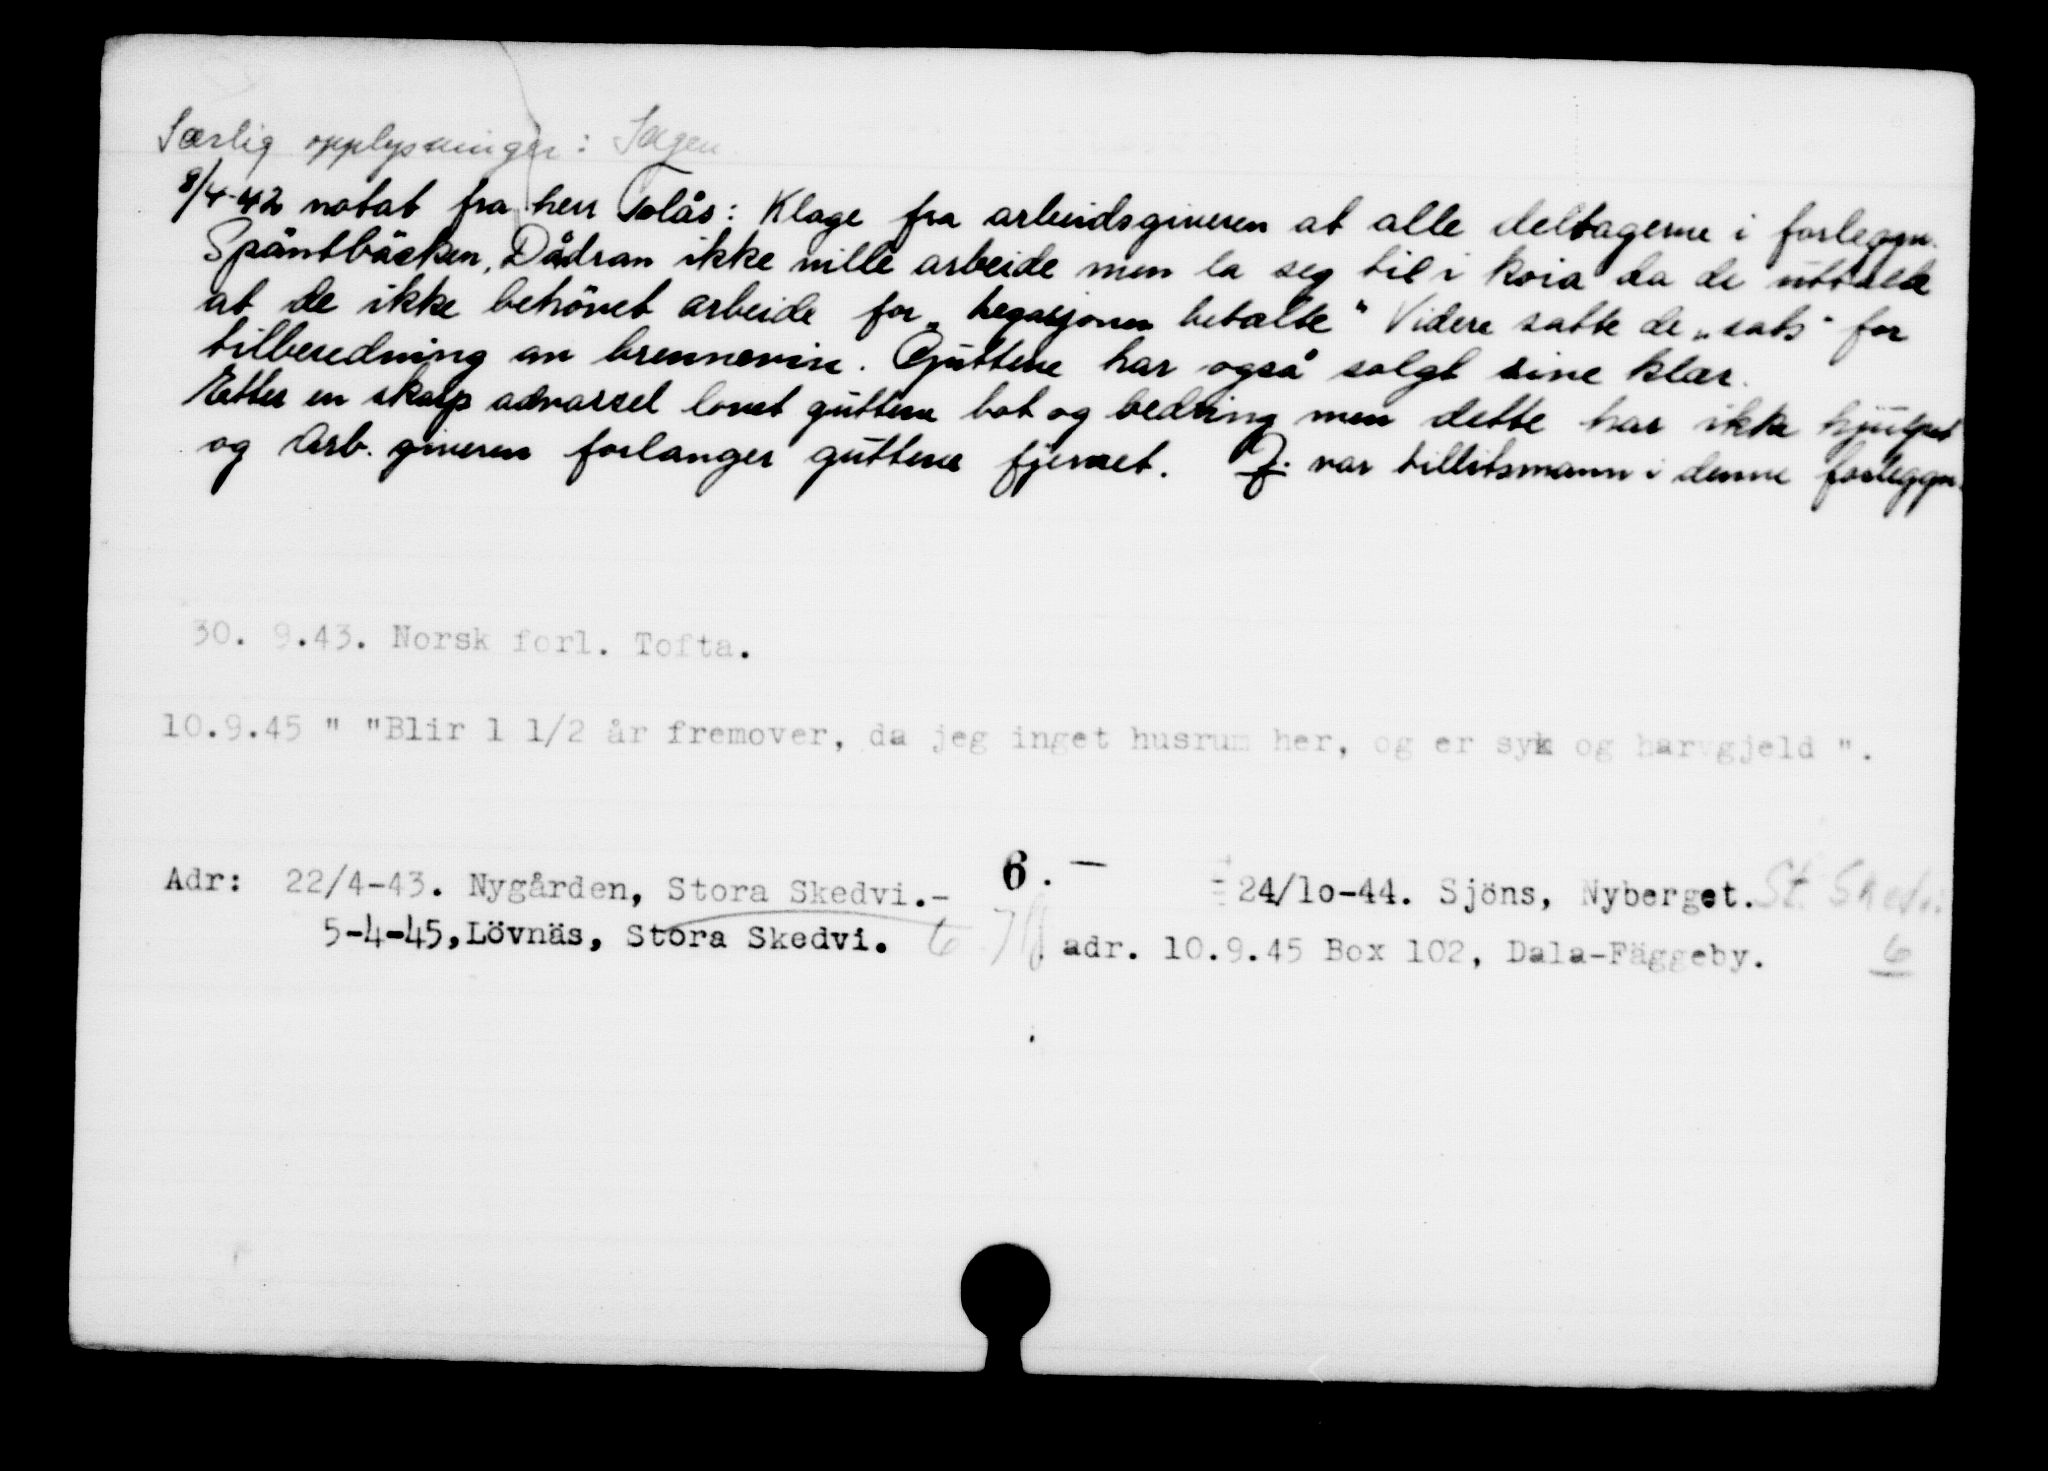 Særlig opplysninger: Ingen
8/4-42 notat fra herr Tolås: Klage fra arbeidsgiveren at alle deltagerne i forleggn.
Späntbäcken, Dådran ikke ville arbeide men la seg til i koia da de uttalte
at de ikke behövet arbeide for „Legasjonen betalte" Videre satte de „sats" for
tilberedning av brennevin. Guttene har også solgt sine klær.
Etter en skarp advarsel lovet guttene bot og bedring men dette har ikke hjulpet
og Arb. giveren forlanger guttene fjernet. J. var tillitsmann i denne forleggn.
30. 9.43. Norsk forl. Tofta.
10.9.45 " "Blir 1 1/2 år fremover, da jeg inget husrum her, og er syk og har gjeld ".
Adr: 22/4-43. Nygården, Stora Skedvi.- 6. — 24/1o-44. Sjöns, Nyberget. St. Skedvi.
5-4-45, Lövnäs, Stora Skedvi. 6 adr. 10.9.45 Box 102, Dala-Fäggeby. 6